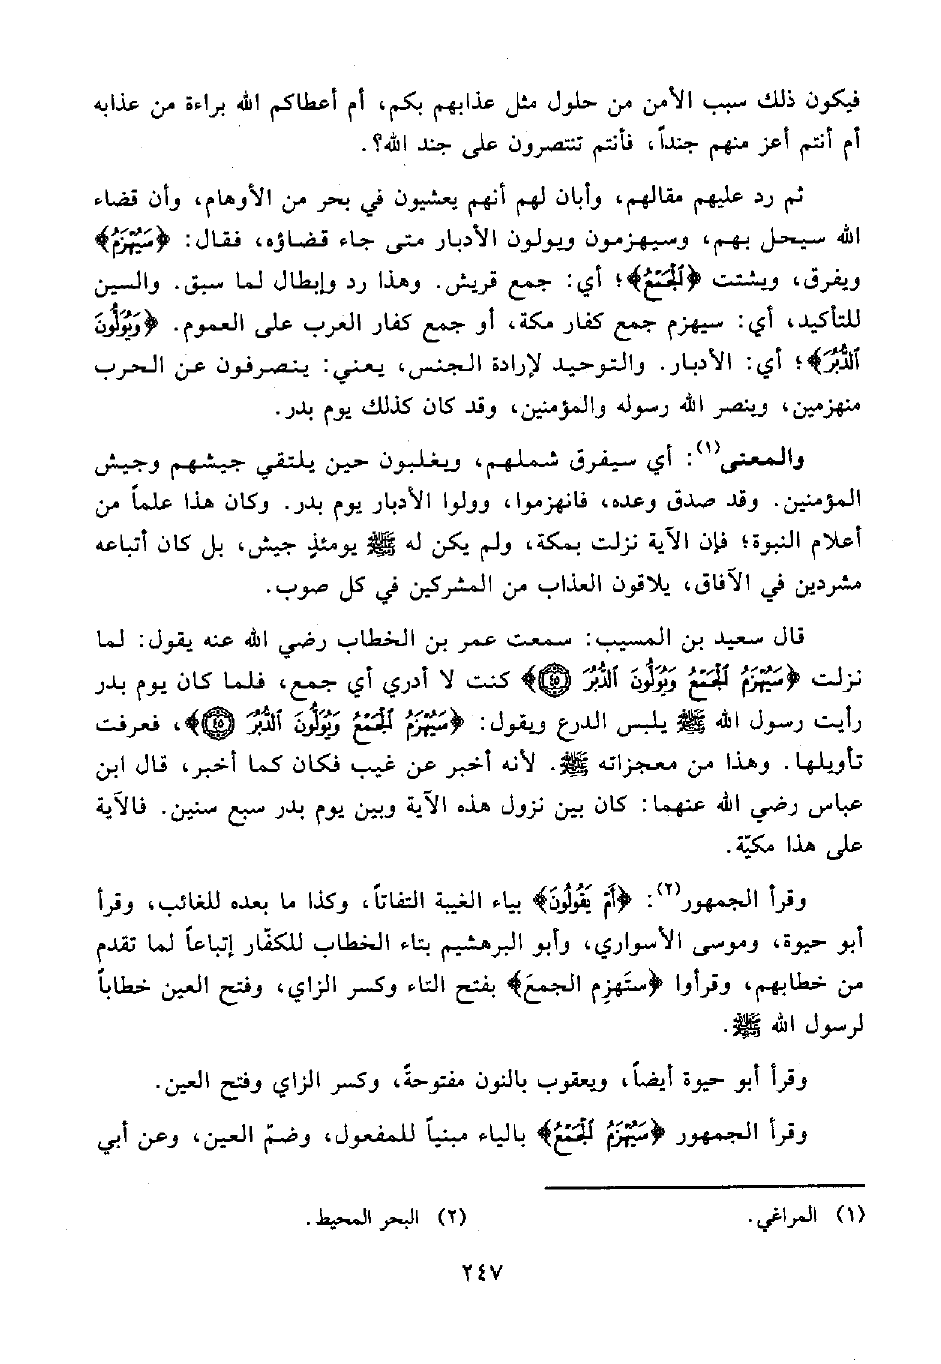 فيكون ذلك سبب الأمن من حلول مثل عذابهم بكم، أم أعطاكم الله براءة من عذابه
أم أنتم أعز منهم جنداً، فأنتم تنتصرون على جند الله؟.
ثم رد عليهم مقالهم، وأبان لهم أنهم يعشيون في بحر من الأوهام، وأن قضاء
الله سيحل بهم، وسيهزمون ويولون الأدبار متى جاء قضاؤه، فقال: ﴿سَيُهْزَمُ﴾
ويفرق، ويشتت ﴿ٱلْجَمْعُ﴾؛ أي: جمع قريش. وهذا رد وإبطال لما سبق. والسين
للتأكيد، أي: سيهزم جمع كفار مكة، أو جمع كفار العرب على العموم. ﴿وَيُوَلُّونَ
ٱلدُّبُرَ﴾؛ أي: الأدبار. والتوحيد لإرادة الجنس، يعني: ينصرفون عن الحرب
منهزمين، وينصر الله رسوله والمؤمنين، وقد كان كذلك يوم بدر.
والمعنى(١): أي سيفرق شملهم، ويغلبون حين يلتقي جيشهم وجيش
المؤمنين. وقد صدق وعده، فانهزموا، وولوا الأدبار يوم بدر. وكان هذا علماً من
أعلام النبوة؛ فإن الآية نزلت بمكة، ولم يكن له ﷺ يومئذٍ جيش، بل كان أتباعه
مشردين في الآفاق، يلاقون العذاب من المشركين في كل صوب.
قال سعيد بن المسيب: سمعت عمر بن الخطاب رضي الله عنه يقول: لما
نزلت ﴿سَيُهْزَمُ ٱلْجَمْعُ وَيُوَلُّونَ ٱلدُّبُرَ ۝٤٥﴾ كنت لا أدري أي جمع، فلما كان يوم بدر
رأيت رسول الله ﷺ يلبس الدرع ويقول: ﴿سَيُهْزَمُ ٱلْجَمْعُ وَيُوَلُّونَ ٱلدُّبُرَ ۝٤٥﴾، فعرفت
تأويلها. وهذا من معجزاته ﷺ. لأنه أخبر عن غيب فكان كما أخبر، قال ابن
عباس رضي الله عنهما: كان بين نزول هذه الآية وبين يوم بدر سبع سنين. فالآية
على هذا مكيّة.
وقرأ الجمهور(٢): ﴿أَمْ يَقُولُونَ﴾ بياء الغيبة التفاتاً، وكذا ما بعده للغائب، وقرأ
أبو حيوة، وموسى الأسواري، وأبو البرهشيم بتاء الخطاب للكفّار إتباعاً لما تقدم
من خطابهم، وقرأوا ﴿سَتَهزِم الجمعَ﴾ بفتح التاء وكسر الزاي، وفتح العين خطاباً
لرسول الله ﷺ.
وقرأ أبو حيوة أيضاً، ويعقوب بالنون مفتوحةً، وكسر الزاي وفتح العين.
وقرأ الجمهور ﴿سَيُهْزَمُ ٱلْجَمْعُ﴾ بالياء مبنياً للمفعول، وضمّ العين، وعن أبي
(١) المراغي. (٢) البحر المحيط.
٢٤٧